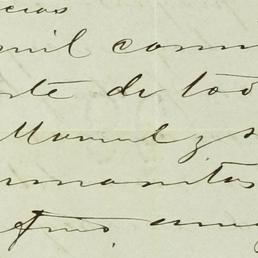 cias
mil comu
te de tod
Manuel y s
rmanitas
afmo. amig